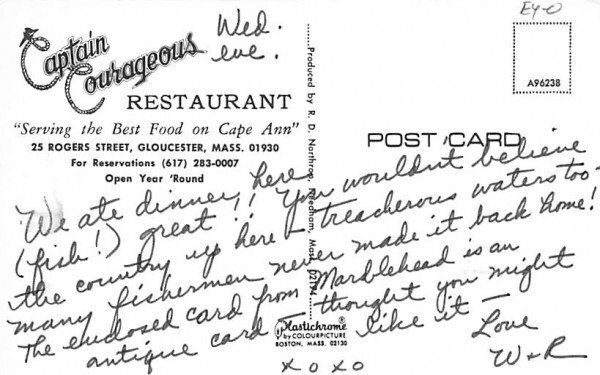 Captain
Courageous
RESTAURANT
"Serving the Best Food on Cape Ann"
25 ROGERS STREET, GLOUCESTER, MASS. 01930
For Reservations (617) 283-0007
Open Year 'Round
Wed.
eve.
Produced by R. D. Northrop, Needham, Mass. 02194
EY-0
A96238
POST CARD
We ate dinner, here
(fish!) great!! You wouldn't believe
the country up here - treacherous waters too -
many fishermen never made it back home!
The enclosed card from Marblehead is an
antique card - thought you might
like it -
Love
W + R
xoxo
Plastichrome
by COLOURPICTURE
BOSTON, MASS. 02130